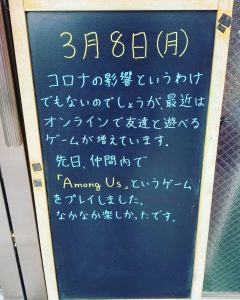 3月8日(月)
コロナの影響というわけ
でもないのでしょうが、最近は
オンラインで友達と遊べる
ゲームが増えています。
先日、仲間内で
「Among Us」というゲーム
をプレイしました。
なかなか楽しかったです。